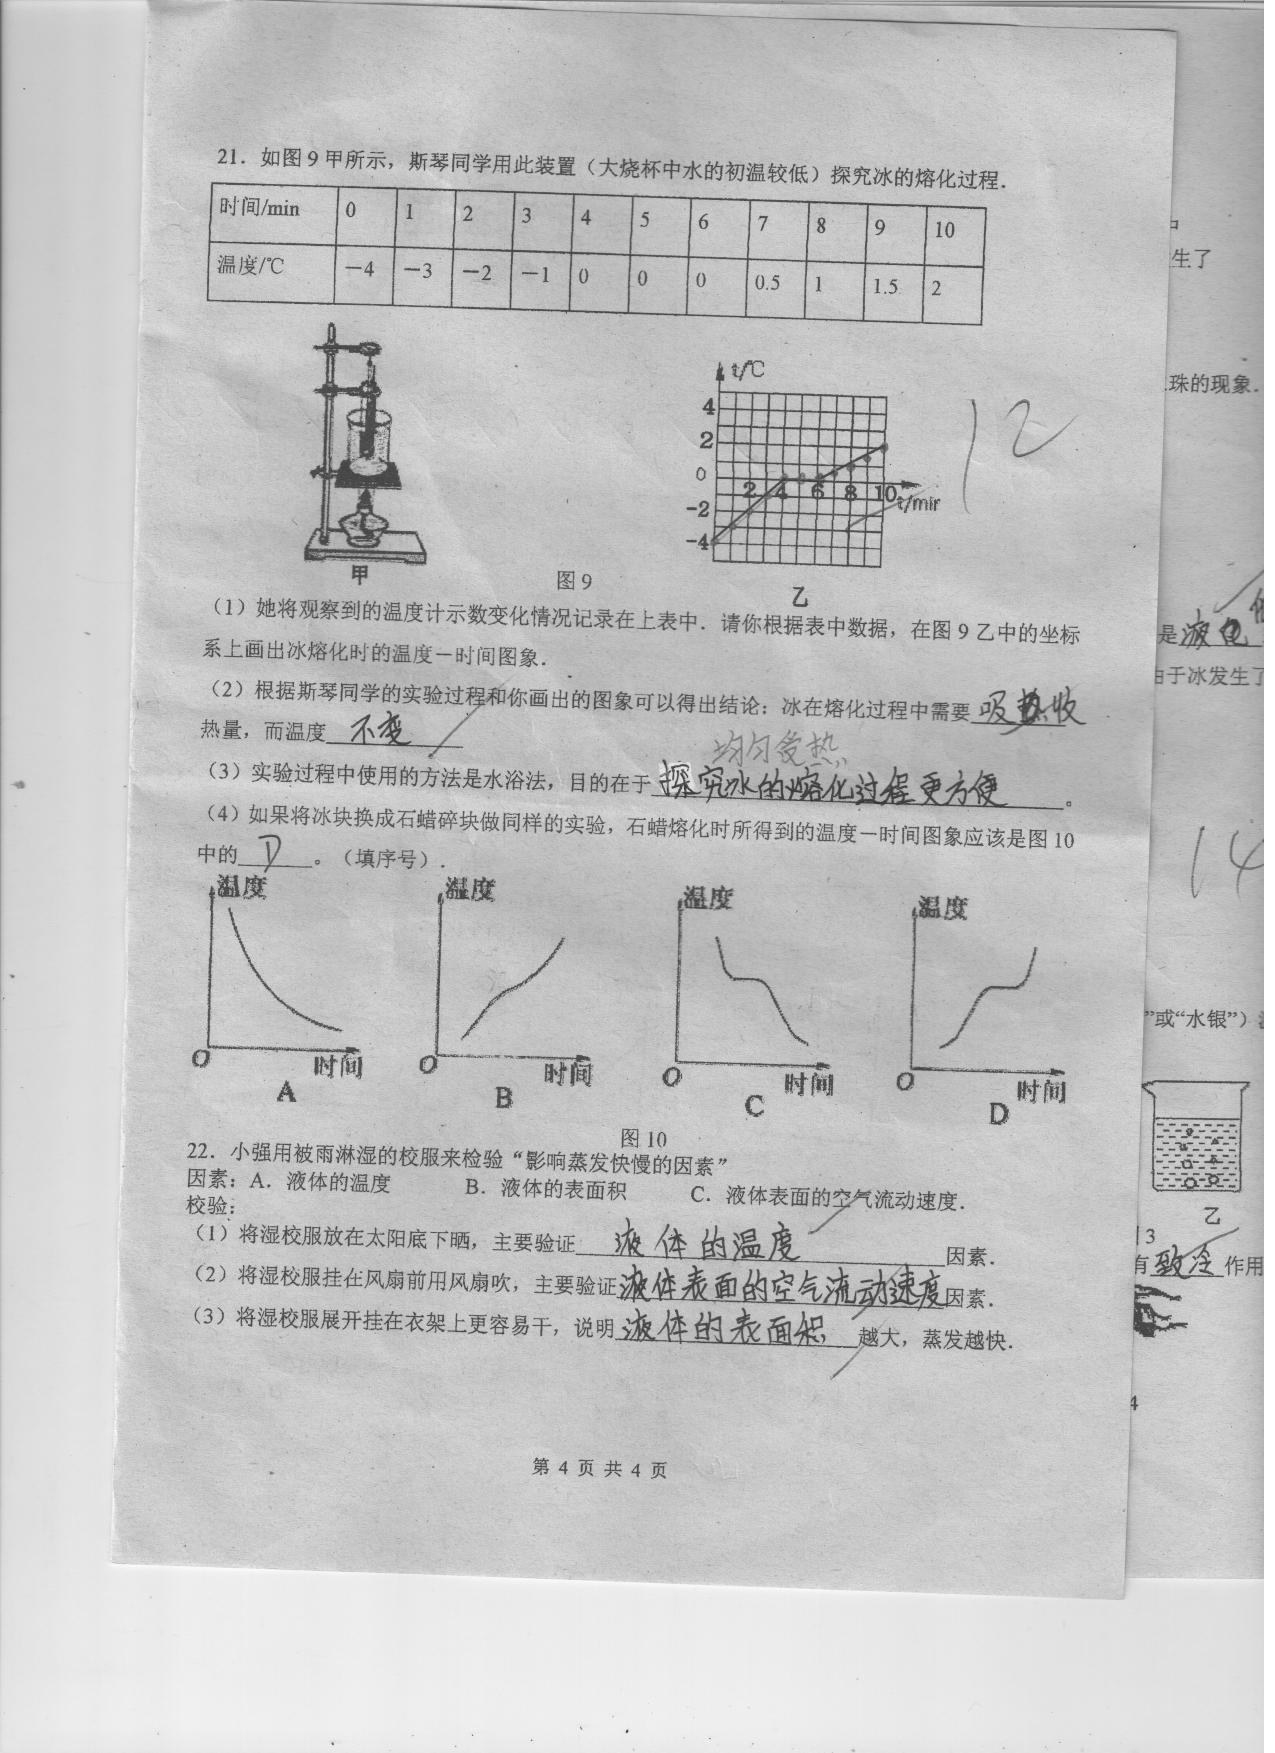 21．如图9甲所示，斯琴同学用此装置（大烧杯中水的初温较低）探究冰的熔化过程．
时间/min 0 1 2 3 4 5 6 7 8 9 10
温度/℃ －4 －3 －2 －1 0 0 0 0.5 1 1.5 2
t/℃
4
2
0
-2
-4
2 4 6 8 10
t/min
12
甲
图9
乙
（1）她将观察到的温度计示数变化情况记录在上表中．请你根据表中数据，在图9乙中的坐标
系上画出冰熔化时的温度－时间图象．
（2）根据斯琴同学的实验过程和你画出的图象可以得出结论：冰在熔化过程中需要吸收
热量，而温度不变
均匀受热
（3）实验过程中使用的方法是水浴法，目的在于探究冰的熔化过程更方便。
（4）如果将冰块换成石蜡碎块做同样的实验，石蜡熔化时所得到的温度－时间图象应该是图10
中的D。（填序号）．
温度 温度 温度 温度
O 时间 O 时间 O 时间 O 时间
A B C D
图10
22．小强用被雨淋湿的校服来检验“影响蒸发快慢的因素”
因素：A．液体的温度 B．液体的表面积 C．液体表面的空气流动速度．
校验：
（1）将湿校服放在太阳底下晒，主要验证液体的温度因素．
（2）将湿校服挂在风扇前用风扇吹，主要验证液体表面的空气流动速度因素．
（3）将湿校服展开挂在衣架上更容易干，说明液体的表面积越大，蒸发越快．
第 4 页 共 4 页
生了
珠的现象．
是液化
由于冰发生了
14
”或“水银”）
乙
3
有致冷作用
4